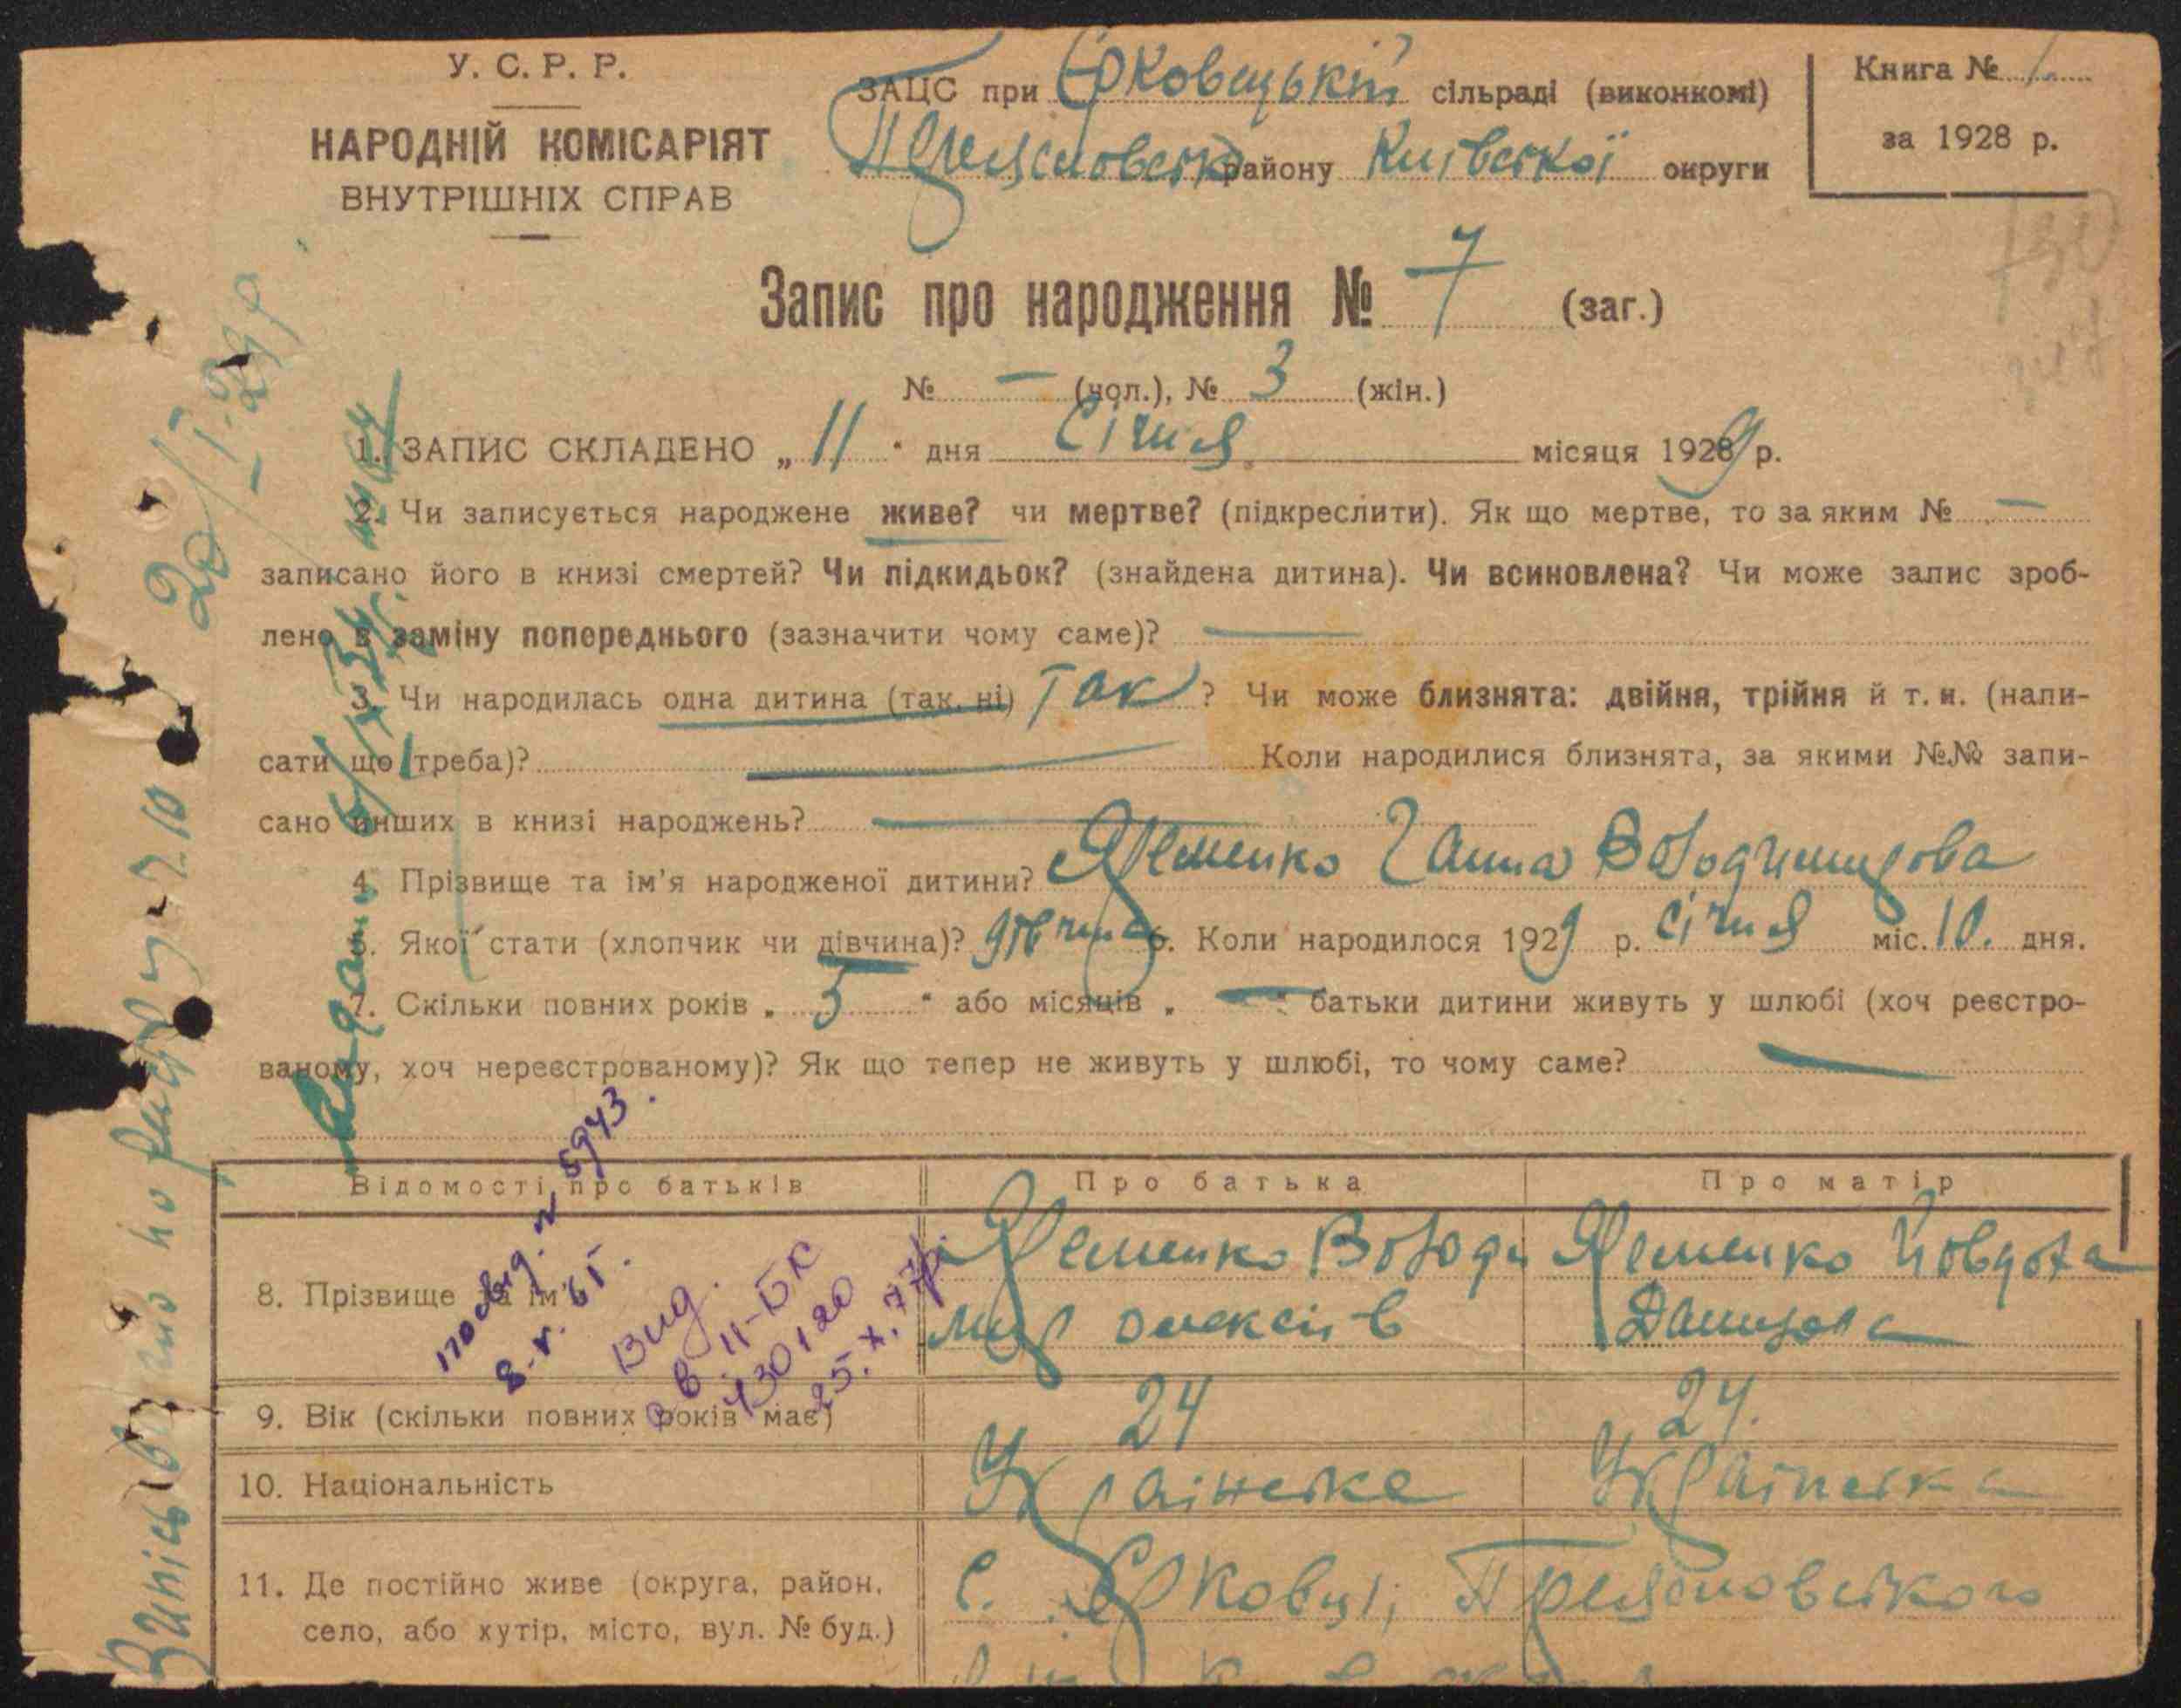 У. С. Р. Р.
НАРОДНІЙ КОМІСАРІЯТ
ВНУТРІШНІХ СПРАВ
ЗАЦС при Єрковецькій сільраді (виконкомі)
району Київської округи
Книга № 1
за 1928 р.
Запис про народження № 7 (заг.)
№ — (чол.), № 3 (жін.)
1. ЗАПИС СКЛАДЕНО „ 11 “ дня Січня місяця 1929 р.
2. Чи записується народжене живе? чи мертве? (підкреслити). Як що мертве, то за яким № —
записано його в книзі смертей? Чи підкидьок? (знайдена дитина). Чи всиновлена? Чи може запис зроб-
лено в заміну попереднього (зазначити чому саме)? —
3. Чи народилась одна дитина (так, ні) Так ? Чи може близнята: двійня, трійня й т. и. (напи-
сати що треба)? — Коли народилися близнята, за якими №№ запи-
сано инших в книзі народжень? —
4. Прізвище та ім'я народженої дитини? Яременко Ганна Володимирова
5. Якої стати (хлопчик чи дівчина)? дівчина 6. Коли народилося 1929 р. січня міс. 10. дня.
7. Скільки повних років „ 5 “ або місяців „ — “ батьки дитини живуть у шлюбі (хоч реєстро-
ваному, хоч нереєстрованому)? Як що тепер не живуть у шлюбі, то чому саме? —
Відомості про батьків Про батька Про матір
8. Прізвище та ім'я
Яременко Володи
мир Олексіїв
Яременко Йовдоха
9. Вік (скільки повних років має) 24 24.
10. Національність Українська Українська
11. Де постійно живе (округа, район,
село, або хутір, місто, вул. № буд.)
с. Єрковці,
посвід. № 5943.
8-V. 61
Вид.
11-БК
430120
25.X.77р.
20/I-29р